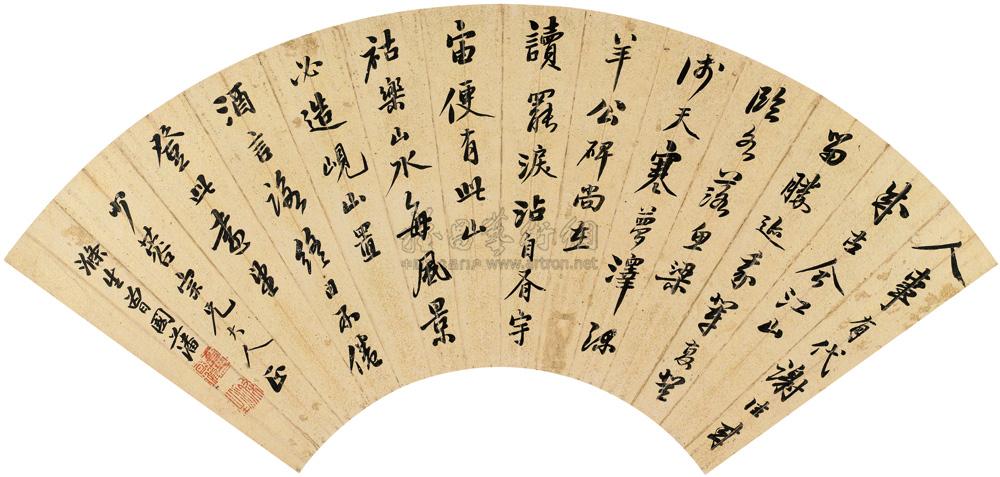 人事有代謝往來
成古今江山
留勝迹我輩復登
臨水落魚梁
淺天寒夢澤深
羊公碑尚在
讀罷淚沾自有宇
宙便有此山
祜樂山水每風景
必造峴山置
酒言詠終日不倦
登此
宗兄大人正
滌生曾國藩
www.artron.net